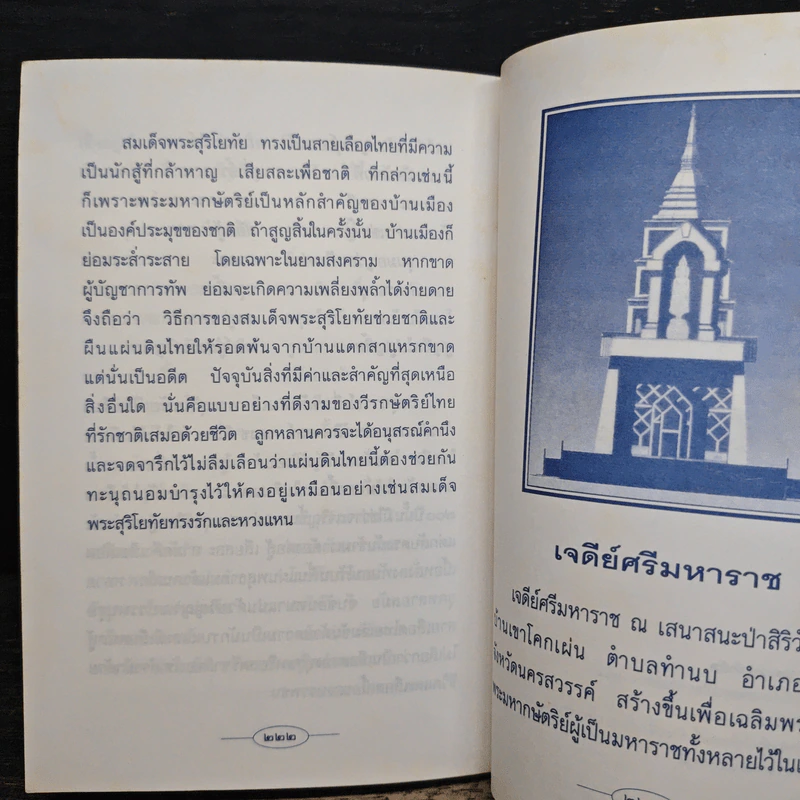 สมเด็จพระสุริโยทัย ทรงเป็นสายเลือดไทยที่มีความ
เป็นนักสู้ที่กล้าหาญ เสียสละเพื่อชาติ ที่กล่าวเช่นนี้
ก็เพราะพระมหากษัตริย์เป็นหลักสำคัญของบ้านเมือง
เป็นองค์ประมุขของชาติ ถ้าสูญสิ้นในครั้งนั้น บ้านเมืองก็
ย่อมระส่ำระสาย โดยเฉพาะในยามสงคราม หากขาด
ผู้บัญชาการทัพ ย่อมจะเกิดความเพลี่ยงพล้ำได้ง่ายดาย
จึงถือว่า วิธีการของสมเด็จพระสุริโยทัยช่วยชาติและ
ผืนแผ่นดินไทยให้รอดพ้นจากบ้านแตกสาแหรกขาด
แต่นั่นเป็นอดีต ปัจจุบันสิ่งที่มีค่าและสำคัญที่สุดเหนือ
สิ่งอื่นใด นั่นคือแบบอย่างที่ดีงามของวีรกษัตริย์ไทย
ที่รักชาติเสมอด้วยชีวิต ลูกหลานควรจะได้อนุสรณ์คำนึง
และจดจารึกไว้ไม่ลืมเลือนว่าแผ่นดินไทยนี้ต้องช่วยกัน
ทะนุถนอมบำรุงไว้ให้คงอยู่เหมือนอย่างเช่นสมเด็จ
พระสุริโยทัยทรงรักและหวงแหน
๒๒๒
เจดีย์ศรีมหาราช
เจดีย์ศรีมหาราช ณ เสนาสนะป่าสิริวั
บ้านเขาโคกเผ่น ตำบลทำนบ อำเภอ
จังหวัดนครสวรรค์ สร้างขึ้นเพื่อเฉลิมพร
พระมหากษัตริย์ผู้เป็นมหาราชทั้งหลายไว้ใน